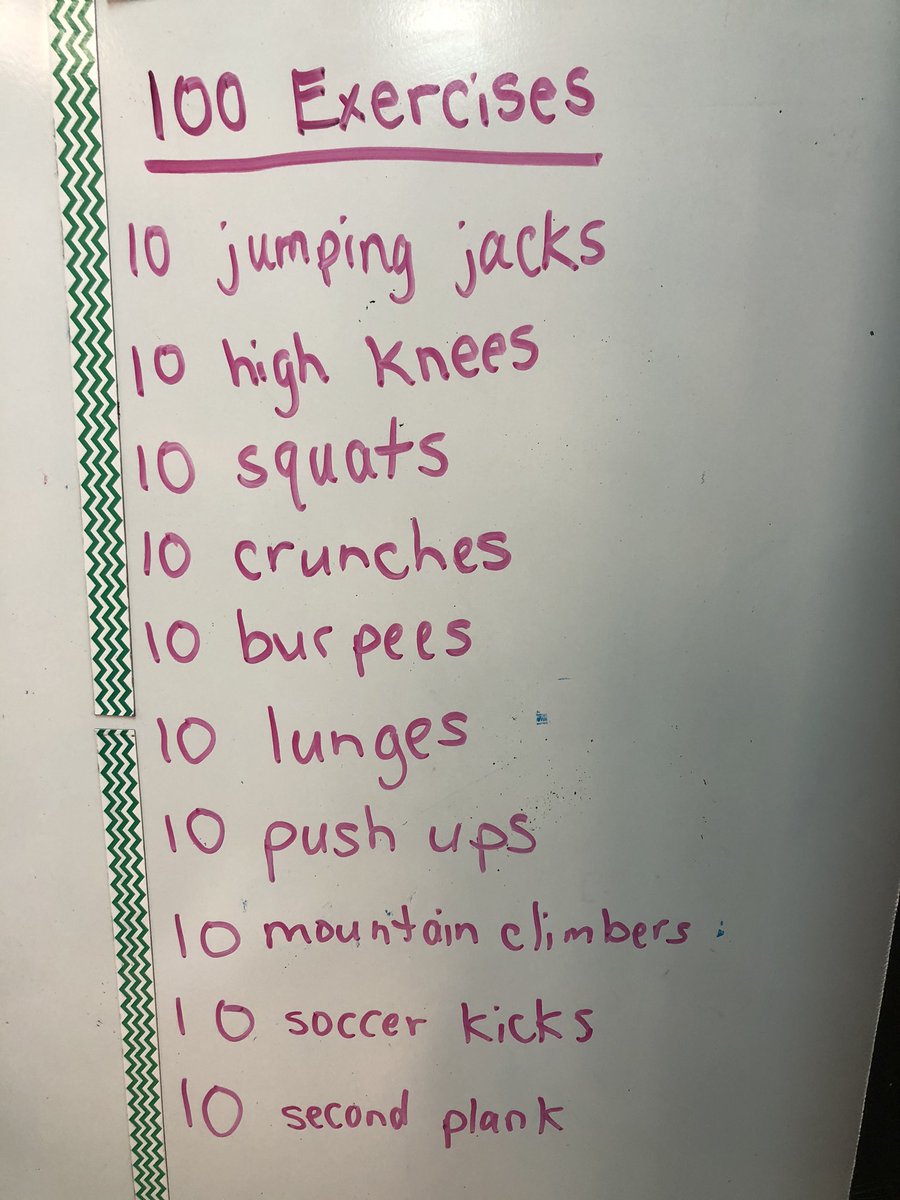 100 Exercises
10 jumping jacks
10 high knees
10 squats
10 crunches
10 burpees
10 lunges
10 push ups
10 mountain climbers
10 soccer kicks
10 second plank